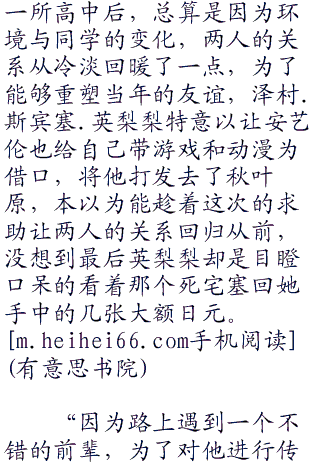 一所高中后，总算是因为环
境与同学的变化，两人的关
系从冷淡回暖了一点，为了
能够重塑当年的友谊，泽村.
斯宾塞.英梨梨特意以让安艺
伦也给自己带游戏和动漫为
借口，将他打发去了秋叶
原，本以为能趁着这次的求
助让两人的关系回归从前，
没想到最后英梨梨却是目瞪
口呆的看着那个死宅塞回她
手中的几张大额日元。
[m.heihei66.com手机阅读]
(有意思书院)
“因为路上遇到一个不
错的前辈，为了对他进行传